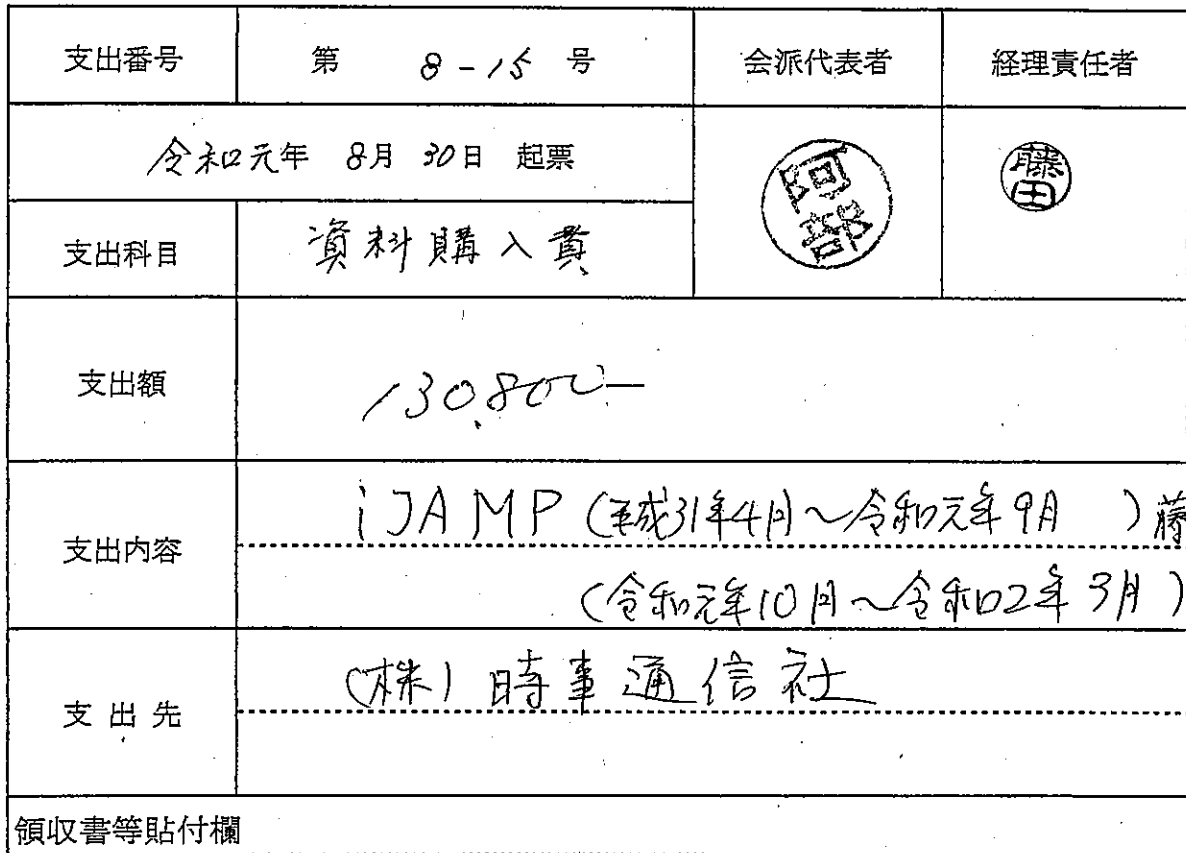 支出番号 第 8-15 号 会派代表者 経理責任者
令和元年 8月 30日 起票
阿部
藤田
支出科目 資料購入費
支出額 130,800-
支出内容 iJAMP (平成31年4月～令和元年9月 ) 藤
(令和元年10月～令和2年3月)
支出先 (株)時事通信社
領収書等貼付欄